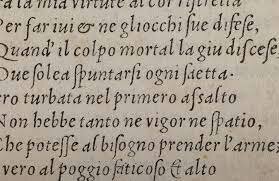 ra la mia virtute al cor ristretta
Per far iui & ne gliocchi sue difese,
Quand' il colpo mortal la giu discese,
Oue solea spuntarsi ogni saetta.
ero turbata nel primero assalto
Non hebbe tanto ne vigor ne spatio,
Che potesse al bisogno prender l'arme;
vero al poggio faticoso & alto